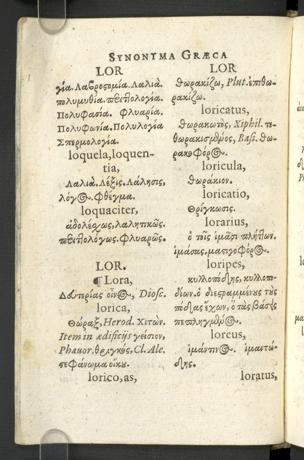 SYNONYMA GRÆCA
LOR
γία. Λαβροστομία. Λαλιά.
πολυμυθία. περιττολογία.
Πολυφασία. Φλυαρία.
Πολυφωνία. Πολυλογία
Σπερμολογία.
loquela, loquen-
tia,
Λαλιά. Λέξις. Λάλησις,
λόγος. Φθέγμα.
loquaciter,
ἀδολέχως, λαλητικῶς.
περιττολόγως. Φλυαρῶς.
LOR.
¶ Lora,
Δευτερίας οἶνος, Diosc.
lorica,
Θώραξ, Herod. Χιτών.
Item in ædificijs γεῖσον,
Phauor. θριγκός, Cl. Ale.
στεφάνωμα οἴκου.
lorico, as,
LOR
θωρακίζω, Plut. ἐπιθω-
ρακίζω.
loricatus,
θωρακωτὸς, Xiphil. τε-
θωρακισμένος, Basi. θω-
ρακοφόρος.
loricula,
θωράκιον.
loricatio,
Θρίγκωσις.
lorarius,
ὁ τοῖς ἱμᾶσι πλήττων.
ἱμάσας, μαστιγοφόρος.
loripes,
κυλλοπόδης, κυλλοπο-
δίων. ὁ διεστραμμένους τοὺς
πόδας ἔχων, ὁ τὰς βάσεις
πεπληγμένος.
loreus,
ἱμάντινος. ἱμαντώ-
δης.
loratus,